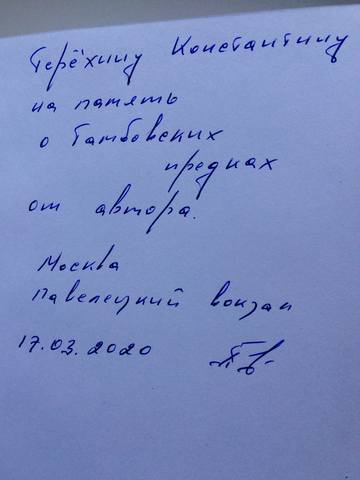 Терёхину Константину
на память
о Тамбовских
предках
от автора.
Москва
Павелецкий вокзал
17.03.2020